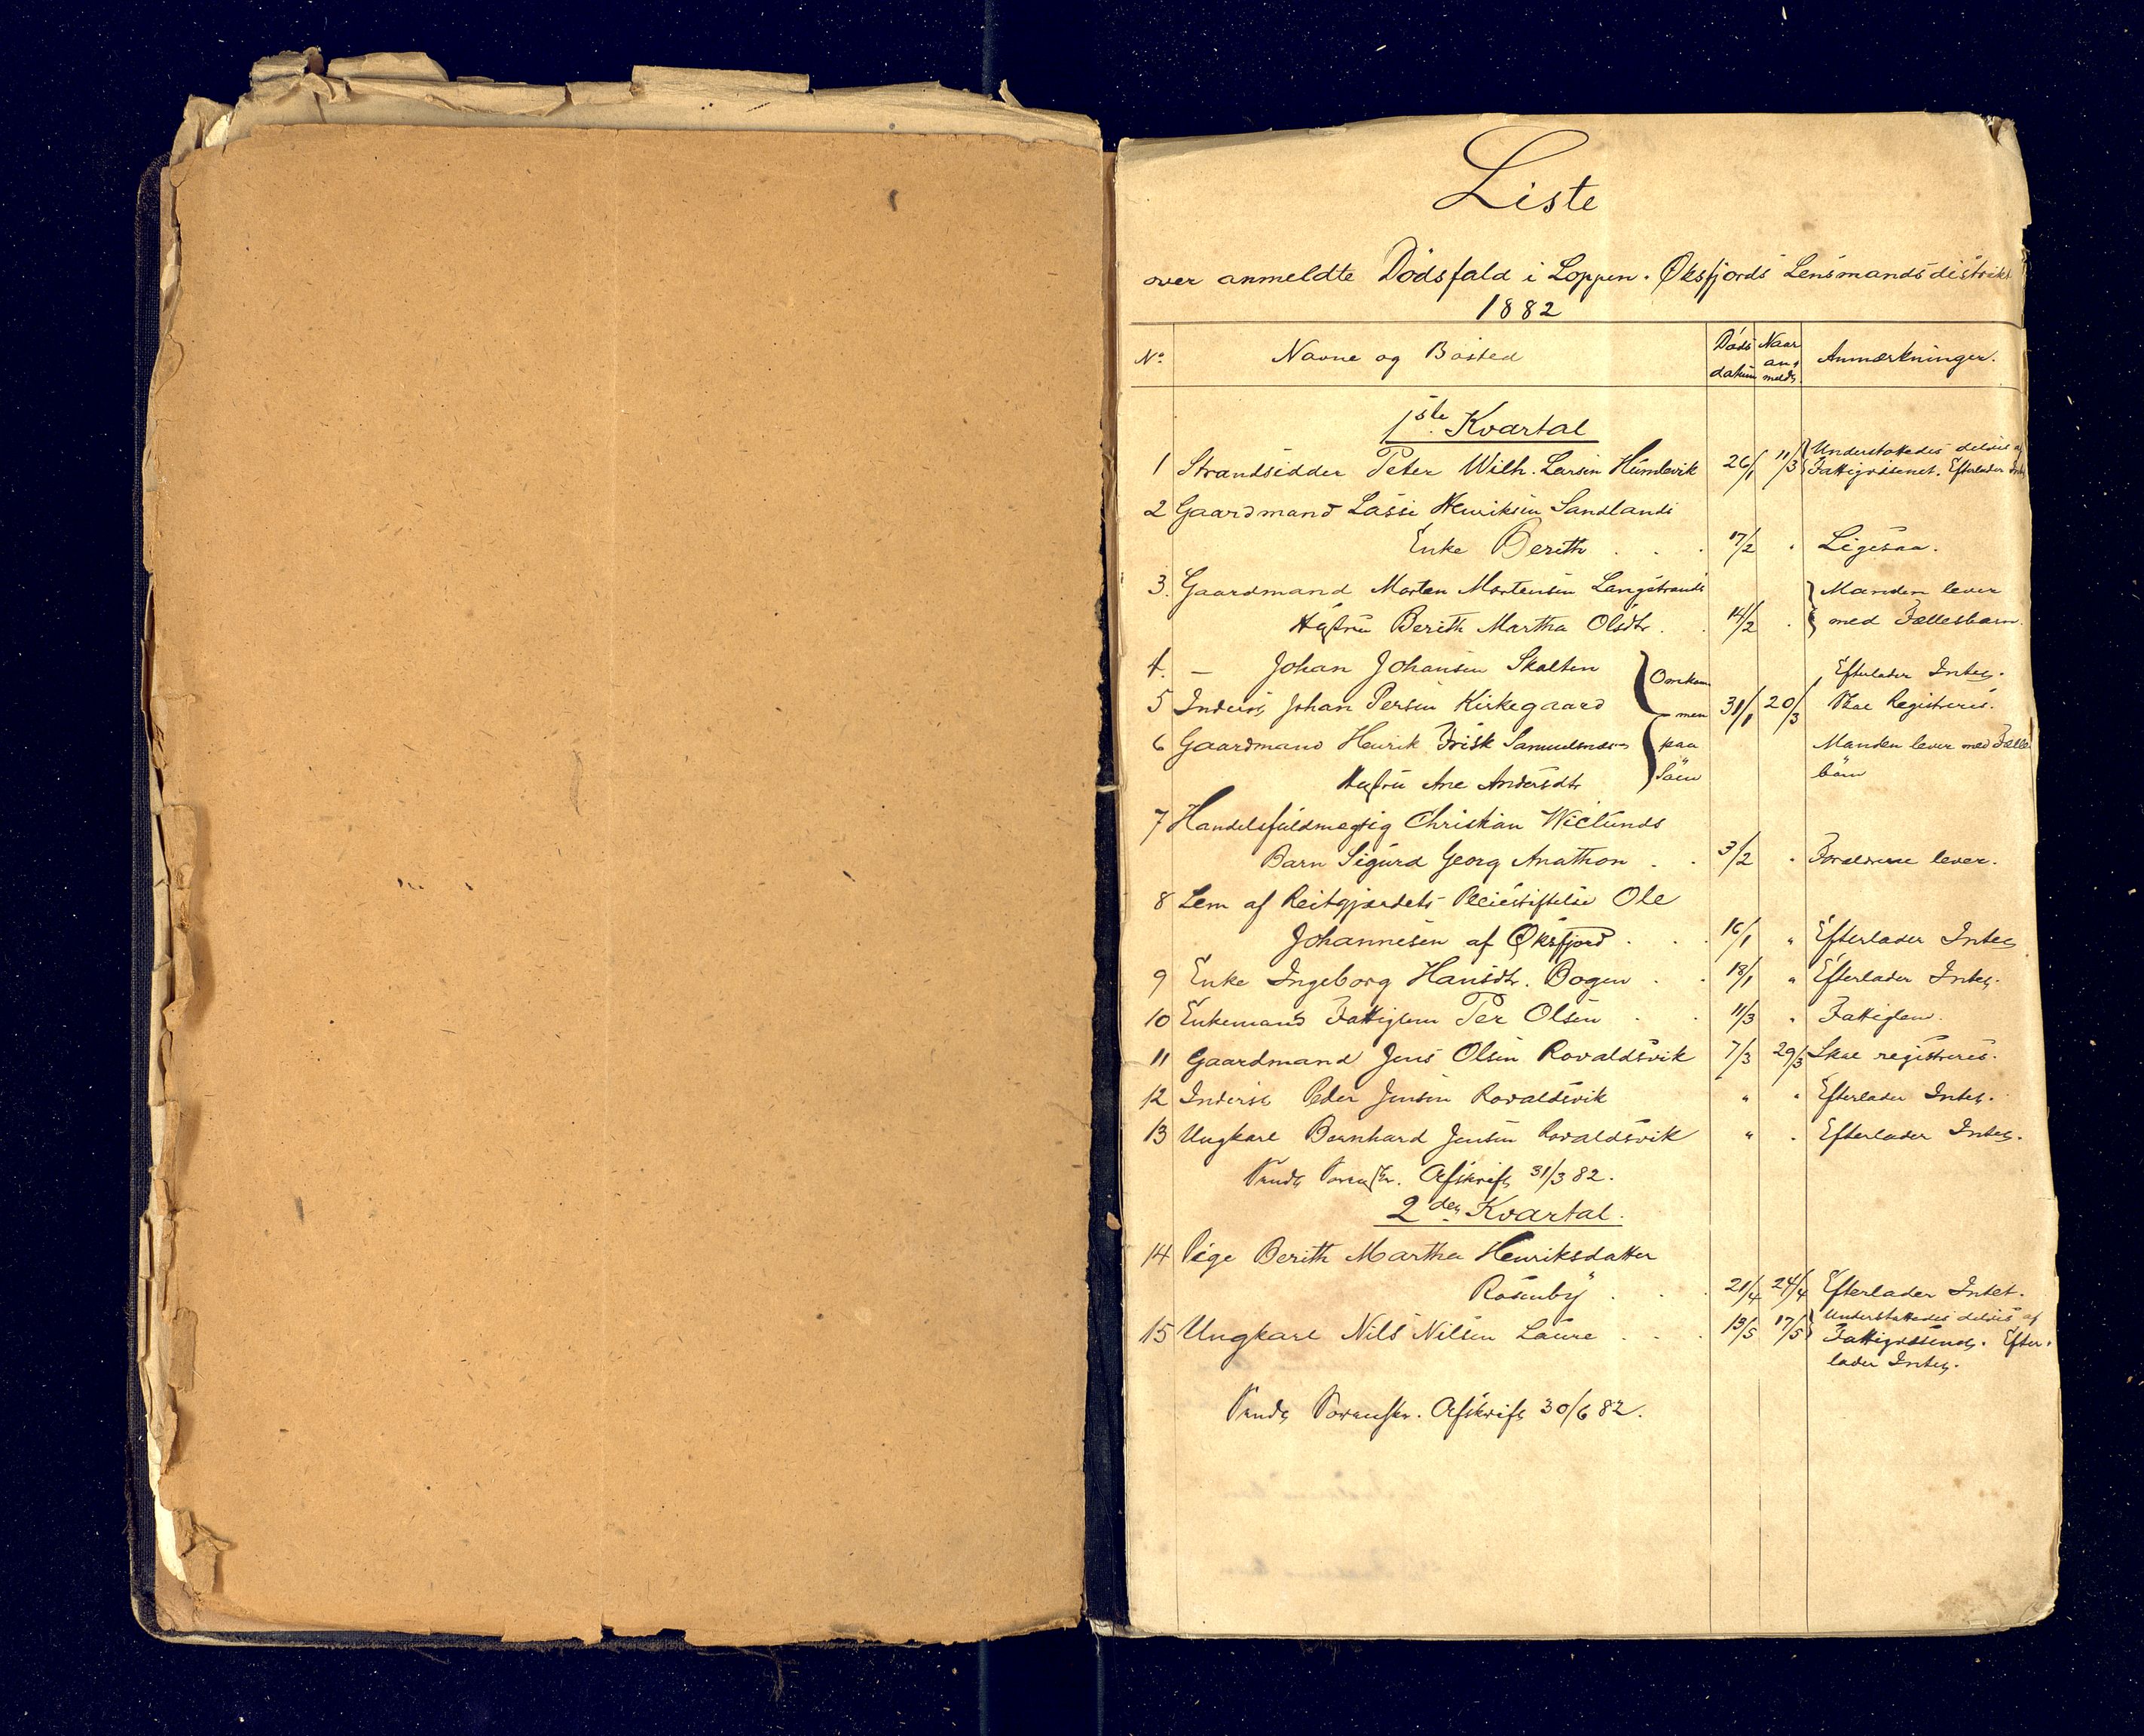 Liste
over anmeldte Dödsfald i Loppen-Øksfjords Lensmandsdistrikt
1882
No Navne og Bosted Döds datum Naar anmeldt Anmærkninger.
1ste Kvartal
1 Strandsidder Peter Wilh. Larsen Humlevik 26/1 11/3 Understöttedes delvis af
Fattigvæsenet. Efterlader Intet
2 Gaardmand Lasse Henriksen Sandlands
Enke Berith . . . 17/2 " Ligesaa.
3. Gaardmand Morten Mortensen Langstrands Manden lever
Hustru Berith Martha Olsdtr . . 14/2 " med Fællesbarn.
4. — Johan Johansen Skalten Omkom Efterlader Intet.
5 Inderst Johan Persen Kirkegaard men 31/1 20/3 Skal Registreres.
6 Gaardmand Henrik Frisk Samuelsens paa Manden lever med Fælles
Hustru Ane Andersdtr Söen börn
7 Handelsfuldmægtig Christian Wiclunds
Barn Sigurd Georg Anathon . . 3/2 " Forældrene lever.
8 Lem af Reitgjærdets Pleiestiftelse Ole
Johannesen af Øksfjord . . . 16/1 " Efterlader Intet
9 Enke Ingeborg Hansdtr. Bogen . . 18/1 " Efterlader Intet.
10 Enkemand Fattiglem Per Olsen . . 11/3 " Fattiglem.
11 Gaardmand Jens Olsen Rovaldsvik 7/3 29/3 Skal registreres.
12 Inderst Peder Jensen Rovaldsvik " " Efterlader Intet.
13 Ungkarl Bernhard Jensen Rovaldsvik " " Efterlader Intet.
Sendt Sorenskr. Afskrift 31/3 82.
2det Kvartal.
14 Pige Berith Martha Henriksdatter
Rosenby . . . 21/4 24/4 Efterlader Intet.
15 Ungkarl Nils Nilsen Laure . . . 13/5 17/5 Understöttedes delvis af
Fattigvæsenet. Efter-
lader Intet.
Sendt Sorenskr. Afskrift 30/6 82.